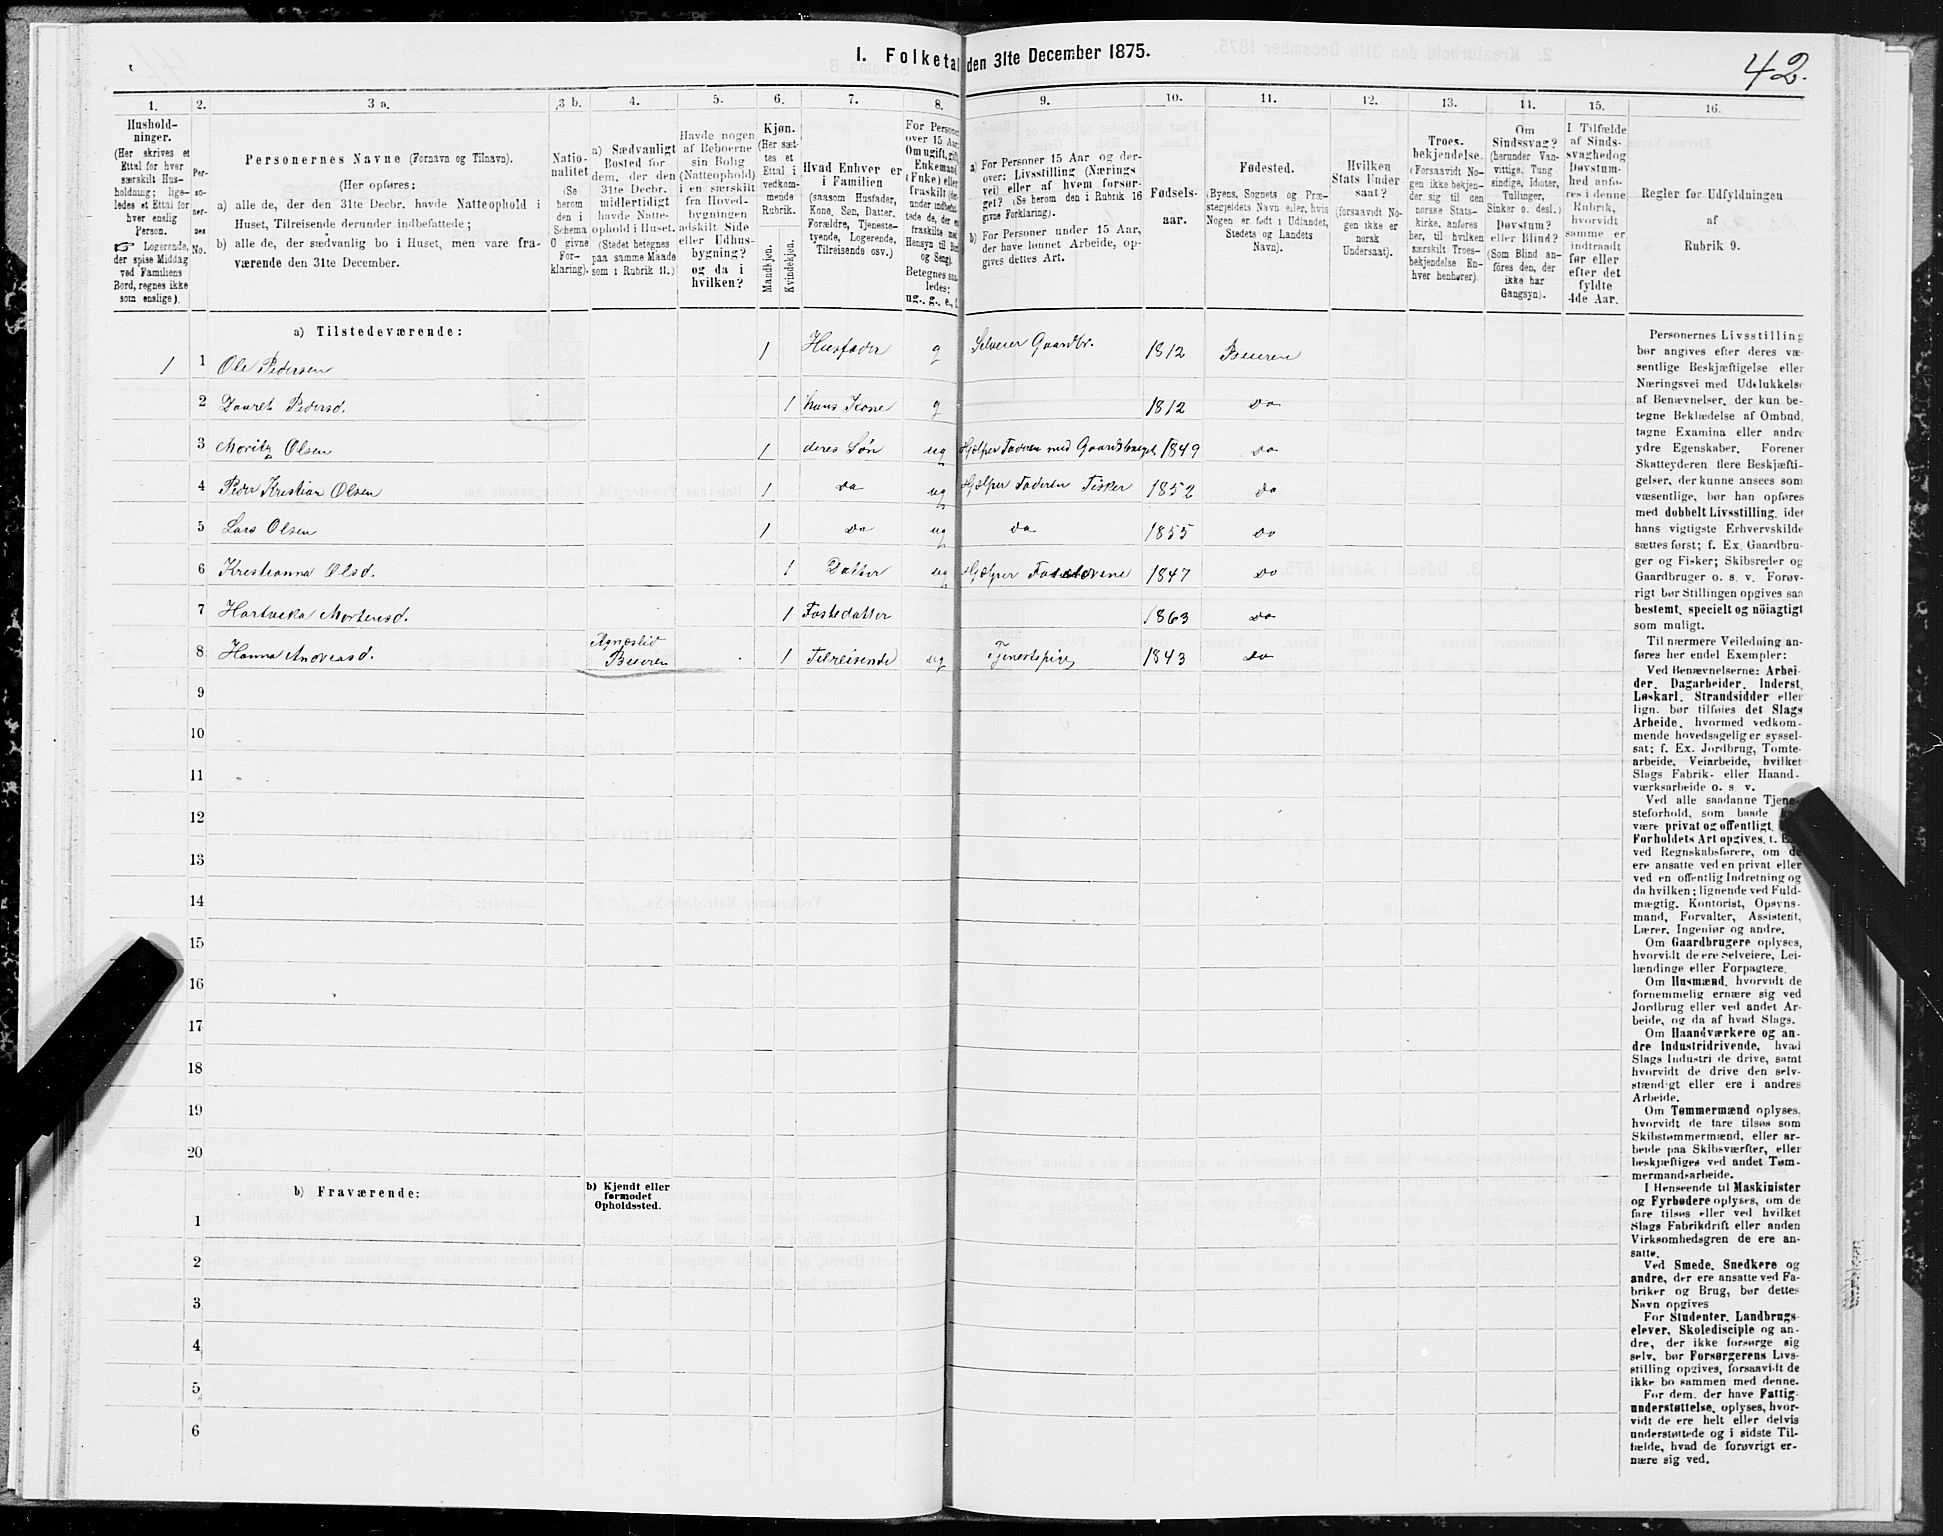 1. Folketal den 31te December 1875.
42.
1. 2. 3 a. 3 b. 4. 5. 6. 7. 8. 9. 10. 11. 12. 13. 11. 15. 16.
Hushold-
ninger.
(Her skrives et
Ettal for hver
særskilt Hus-
holdning; lige-
ledes et Ettal for
hver enslig
Person.
☞ Logerende,
der spise Middag
ved Familiens
Bord, regnes ikke
som enslige).
Per-
so-
ner-
nes
No.
Personernes Navne (Fornavn og Tilnavn).
(Her opføres:
a) alle de, der den 31te Decbr. havde Natteophold i
Huset, Tilreisende derunder indbefattede;
b) alle de, der sædvanlig bo i Huset, men vare fra-
værende den 31te December.
Natio-
nalitet
(Se
herom
den i
Schema
O givne
For-
klaring).
a) Sædvanligt
Bosted for
dem, der den
31te Decbr.
midlertidigt
havde Natte-
ophold i Huset.
(Stedet betegnes
paa samme Maade
som i Rubrik 11.)
Havde nogen
af Beboerne
sin Bolig
(Natteophold)
i en særskilt
fra Hoved-
bygningen
adskilt Side
eller Udhus-
bygning?
og da i
hvilken?
Kjøn.
(Her sæt-
tes et
Ettal i
vedkom-
mende
Rubrik.
Mandkjøn.
Kvindekjøn.
Hvad Enhver er
i Familien
(saasom Husfader,
Kone, Søn, Datter,
Forældre, Tjeneste-
tyende, Logerende,
Tilreisende osv.)
For Personer
over 15 Aar:
Om ugift, gift,
Enkemand
(Enke) eller
fraskilt
Betegnes saa-
ledes:
ug., g., e., f.
a) For Personer 15 Aar og der-
over: Livsstilling (Nærings
vei) eller af hvem forsør-
get? (Se herom den i Rubrik 16
givne Forklaring).
b) For Personer under 15 Aar,
der have lønnet Arbeide, op-
gives dettes Art.
Fødsels-
aar.
Fødested.
(Byens, Sognets og Præ-
stegjeldets Navn eller, hvis
Nogen er født i Udlandet,
Stedets og Landets
Navn).
Hvilken
Stats Under
saat?
(forsaavidt No-
gen ikke er
norsk
Undersaat).
Troes-
bekjendelse.
(Forsaavidt No-
gen ikke bekjen-
der sig til den
norske Stats-
kirke, anføres
her, til hvilken
særskilt Troes-
bekjendelse En-
hver henhører)
Om
Sindssvag?
(herunder Van-
vittige, Tung
sindige, Idioter,
Tullinger,
Sinker o. desl.)
Døvstum?
eller Blind?
(Som Blind an-
føres den, der
ikke har
Gangsyn).
I Tilfælde
af Sinds-
svaghed og
Døvstum-
hed anfø-
res i denne
Rubrik,
hvorvidt
samme er
indtraadt
før eller
efter det
fyldte
4de Aar.
Regler for Udfyldningen
af
Rubrik 9.
a) Tilstedeværende:
1 1 Ole Pedersen 1 Husfader g Selveier Gaardbr. 1812 Beieren
2 Dauret Pedersd. 1 hans Kone g 1812 Do
3 Moritz Olsen 1 deres Søn ug Hjælper Faderen med 1849 Do
4 Peder Kristian Olsen 1 Do ug Hjælper Faderen Fisker 1852 Do
5 Lars Olsen 1 Do ug Do 1855 Do
6 Kristianna Olsd. 1 Datter ug Hjelper 1847 Do
7 Hartvika Mortensd. 1 Fostedatter 1863 Do
8 Hanna Andreasd. Agneslid Beieren 1 Tilreisende ug Tjenestpige 1843 Do
9
10
11
12
13
14
15
16
17
18
19
20
b) Fraværende:
b) Kjendt eller
formodet
Opholdssted.
1
2
3
4
5
6
Personernes Livsstilling
bør angives efter deres væ-
sentlige Beskjæftigelse eller
Næringsvei med Udelukkelse
af Benævnelser, der kun be-
tegne Beklædelse af Ombud,
tagne Examina eller andre
ydre Egenskaber. Forener
Skatteyderen flere Beskjæfti-
gelser, der kunne ansees som
væsentlige, bør han opføres
med dobbelt Livsstilling, idet
hans vigtigste Erhvervskilde
sættes først; f. Ex. Gaardbru-
ger og Fisker; Skibsreder og
Gaardbruger o. s. v. Forøv-
rigt bør Stillingen opgives saa
bestemt, specielt og nöiagtigt
som muligt.
Til nærmere Veiledning an-
føres her endel Exempler:
Ved Benævnelserne: Arbei-
der, Dagarbeider, Inderst,
Løskarl, Strandsidder eller
lign. bør tilføies det Slags
Arbeide, hvormed vedkom-
mende hovedsagelig er syssel-
sat; f. Ex. Jordbrug, Tomte-
arbeide, Veiarbeide, hvilket
Slags Fabrik- eller Haand-
værksarbeide o. s. v.
Ved alle saadanne Tjene-
steforhold, som baade
være privat og offentligt,
Forholdets Art opgives, t.
ved Regnskabsførere, om de
ere ansatte ved en privat eller
ved en offentlig Indretning og
da hvilken; lignende ved Fuld-
mægtig, Kontorist, Opsyns-
mand, Forvalter, Assistent,
Lærer, Ingeniør og andre.
Om Gaardbrugere oplyses,
hvorvidt de ere Selveiere, Lei-
lændinge eller Forpagtere.
Om Husmænd, hvorvidt de
fornemmelig ernære sig ved
Jordbrug eller ved andet Ar-
beide, og da af hvad Slags.
Om Haandværkere og an-
dre Industridrivende, hvad
Slags Industri de drive, samt
hvorvidt de drive den selv-
stændigt eller ere i andres
Arbeide.
Om Tømmermænd oplyses,
hvorvidt de fare tilsøs som
Skibstømmermænd, eller ar-
beide paa Skibsværfter, eller
beskjæftiges ved andet Tøm-
mermandsarbeide.
I Henseende til Maskinister
og Fyrbødere oplyses, om de
fare tilsøs eller ved hvilket
Slags Fabrikdrift eller anden
Virksomhedsgren de ere an-
satte.
Ved Smede, Snedkere og
andre, der ere ansatte ved Fa-
briker og Brug, bør dettes
Navn opgives
For Studenter, Landbrugs-
elever, Skoledisciple og an-
dre, der ikke forsørge sig
selv, bør Forsørgerens Livs-
stilling opgives, forsaavidt de
ikke bo sammen med denne.
For dem, der have Fattig-
understøttelse, oplyses, hvor-
vidt de ere helt eller delvis
understøttede og i sidste Til-
fælde, hvad de forøvrigt er-
nære sig ved.